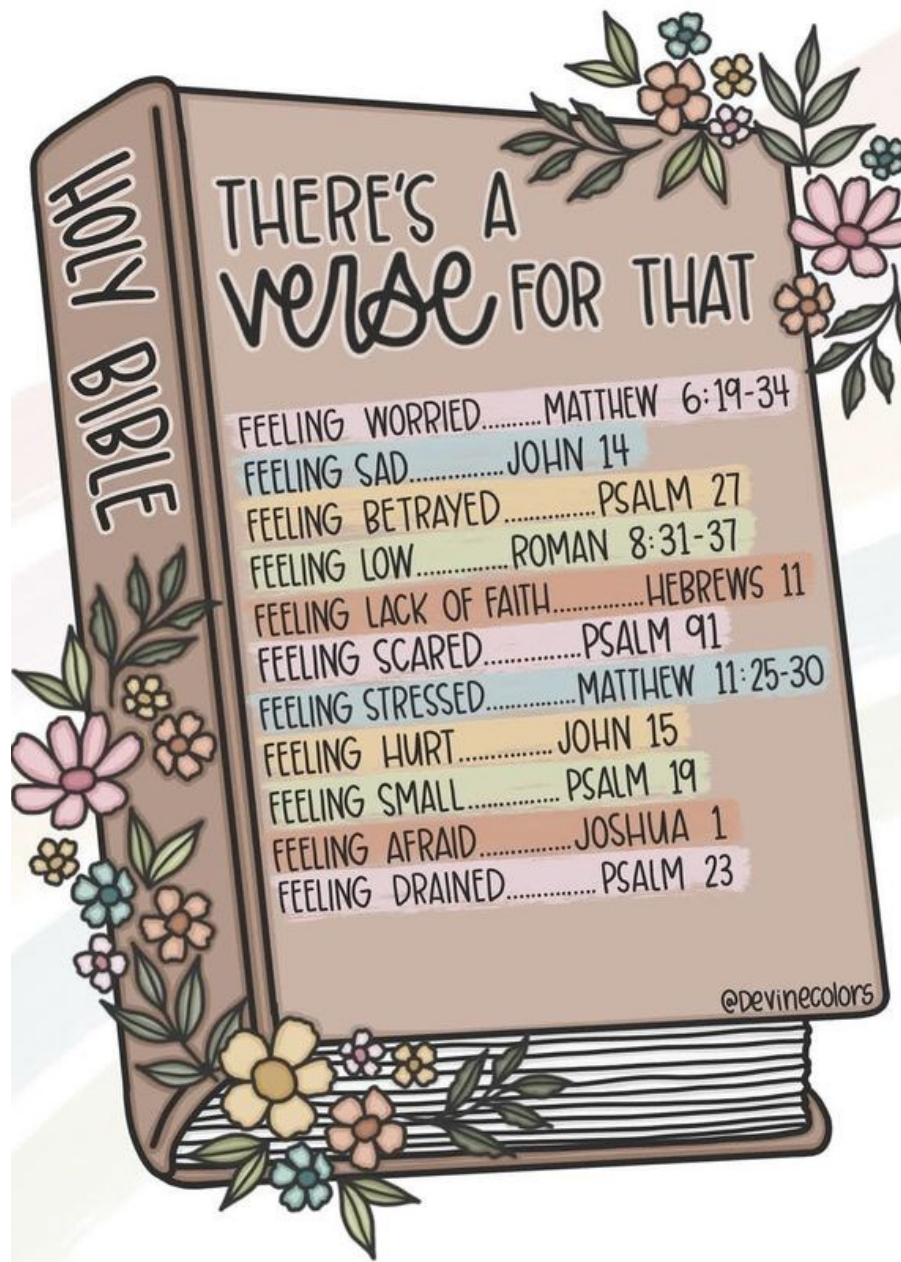 HOLY BIBLE
THERE'S A
verse FOR THAT
FEELING WORRIED..........MATTHEW 6:19-34
FEELING SAD...............JOHN 14
FEELING BETRAYED...............PSALM 27
FEELING LOW...............ROMAN 8:31-37
FEELING LACK OF FAITH...............HEBREWS 11
FEELING SCARED...............PSALM 91
FEELING STRESSED...............MATTHEW 11:25-30
FEELING HURT...............JOHN 15
FEELING SMALL...............PSALM 19
FEELING AFRAID...............JOSHUA 1
FEELING DRAINED...............PSALM 23
@Devinecolors